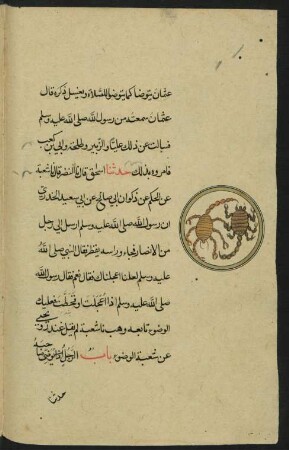 عثمان يتوضأ كما يتوضأ للصلاة ويغسل ذكره قال
عثمان سمعته من رسول الله صلى الله عليه وسلم
فسألت عن ذلك عليا والزبير وطلحة وأبي بن كعب
فأمروه بذلك حدثنا اسحق قال انا النضر قال انا شعبة
عن الحكم عن ذكوان أبي صالح عن أبي سعيد الخدري
ان رسول الله صلى الله عليه وسلم ارسل الى رجل
من الانصار فجاء وراسه يقطر فقال النبي صلى الله
عليه وسلم لعلنا اعجلناك فقال نعم فقال رسول الله
صلى الله عليه وسلم اذا اعجلت او قحطت فعليك
الوضوء تابعه وهب نا شعبة لم يقل غندر ويحيى
عن شعبة الوضوء باب الرجل يوضئ صاحبه
حدثنا